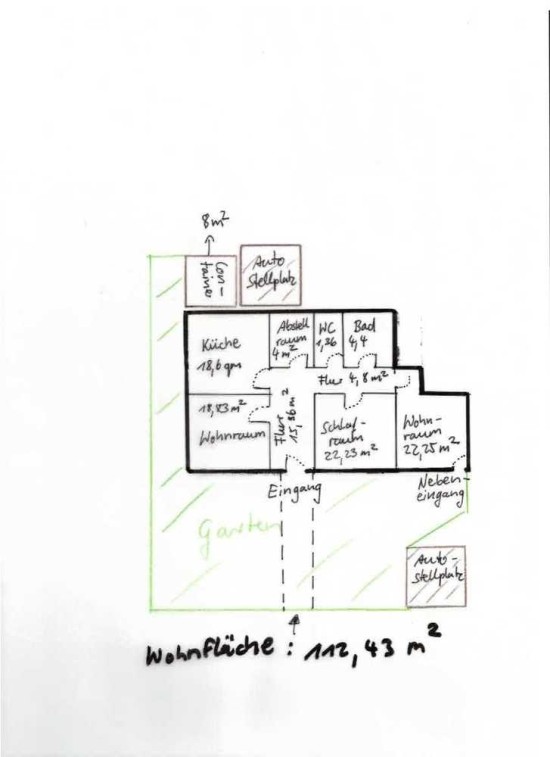 8m²
Con-
tainer
Auto
Stellplatz
Küche
18,6 qm
Abstell
raum
4 m²
WC
1,36
Bad
4,4
Flur 4,8 m²
18,83 m²
Wohnraum
Flur
15,96 m²
Schlaf-
raum
22,23 m²
Wohn-
raum
22,25 m²
Eingang
Neben-
eingang
Garten
Auto-
stellplatz
Wohnfläche : 112,43 m²